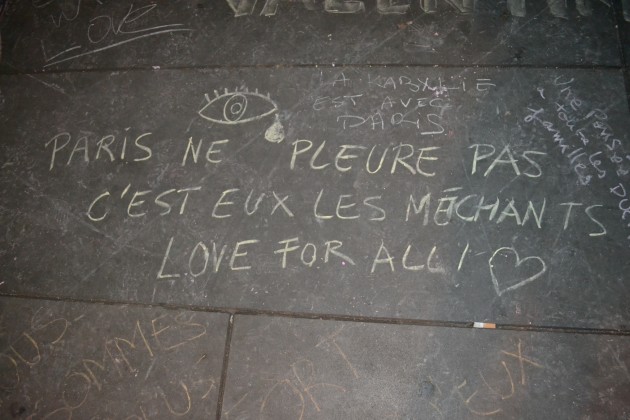 Love
LA KABYLIE
EST AVEC
PARIS
Une Pensée
à toute les
familles
PARIS NE PLEURE PAS
C'EST EUX LES MÉCHANTS
LOVE FOR ALL!
SOMMES